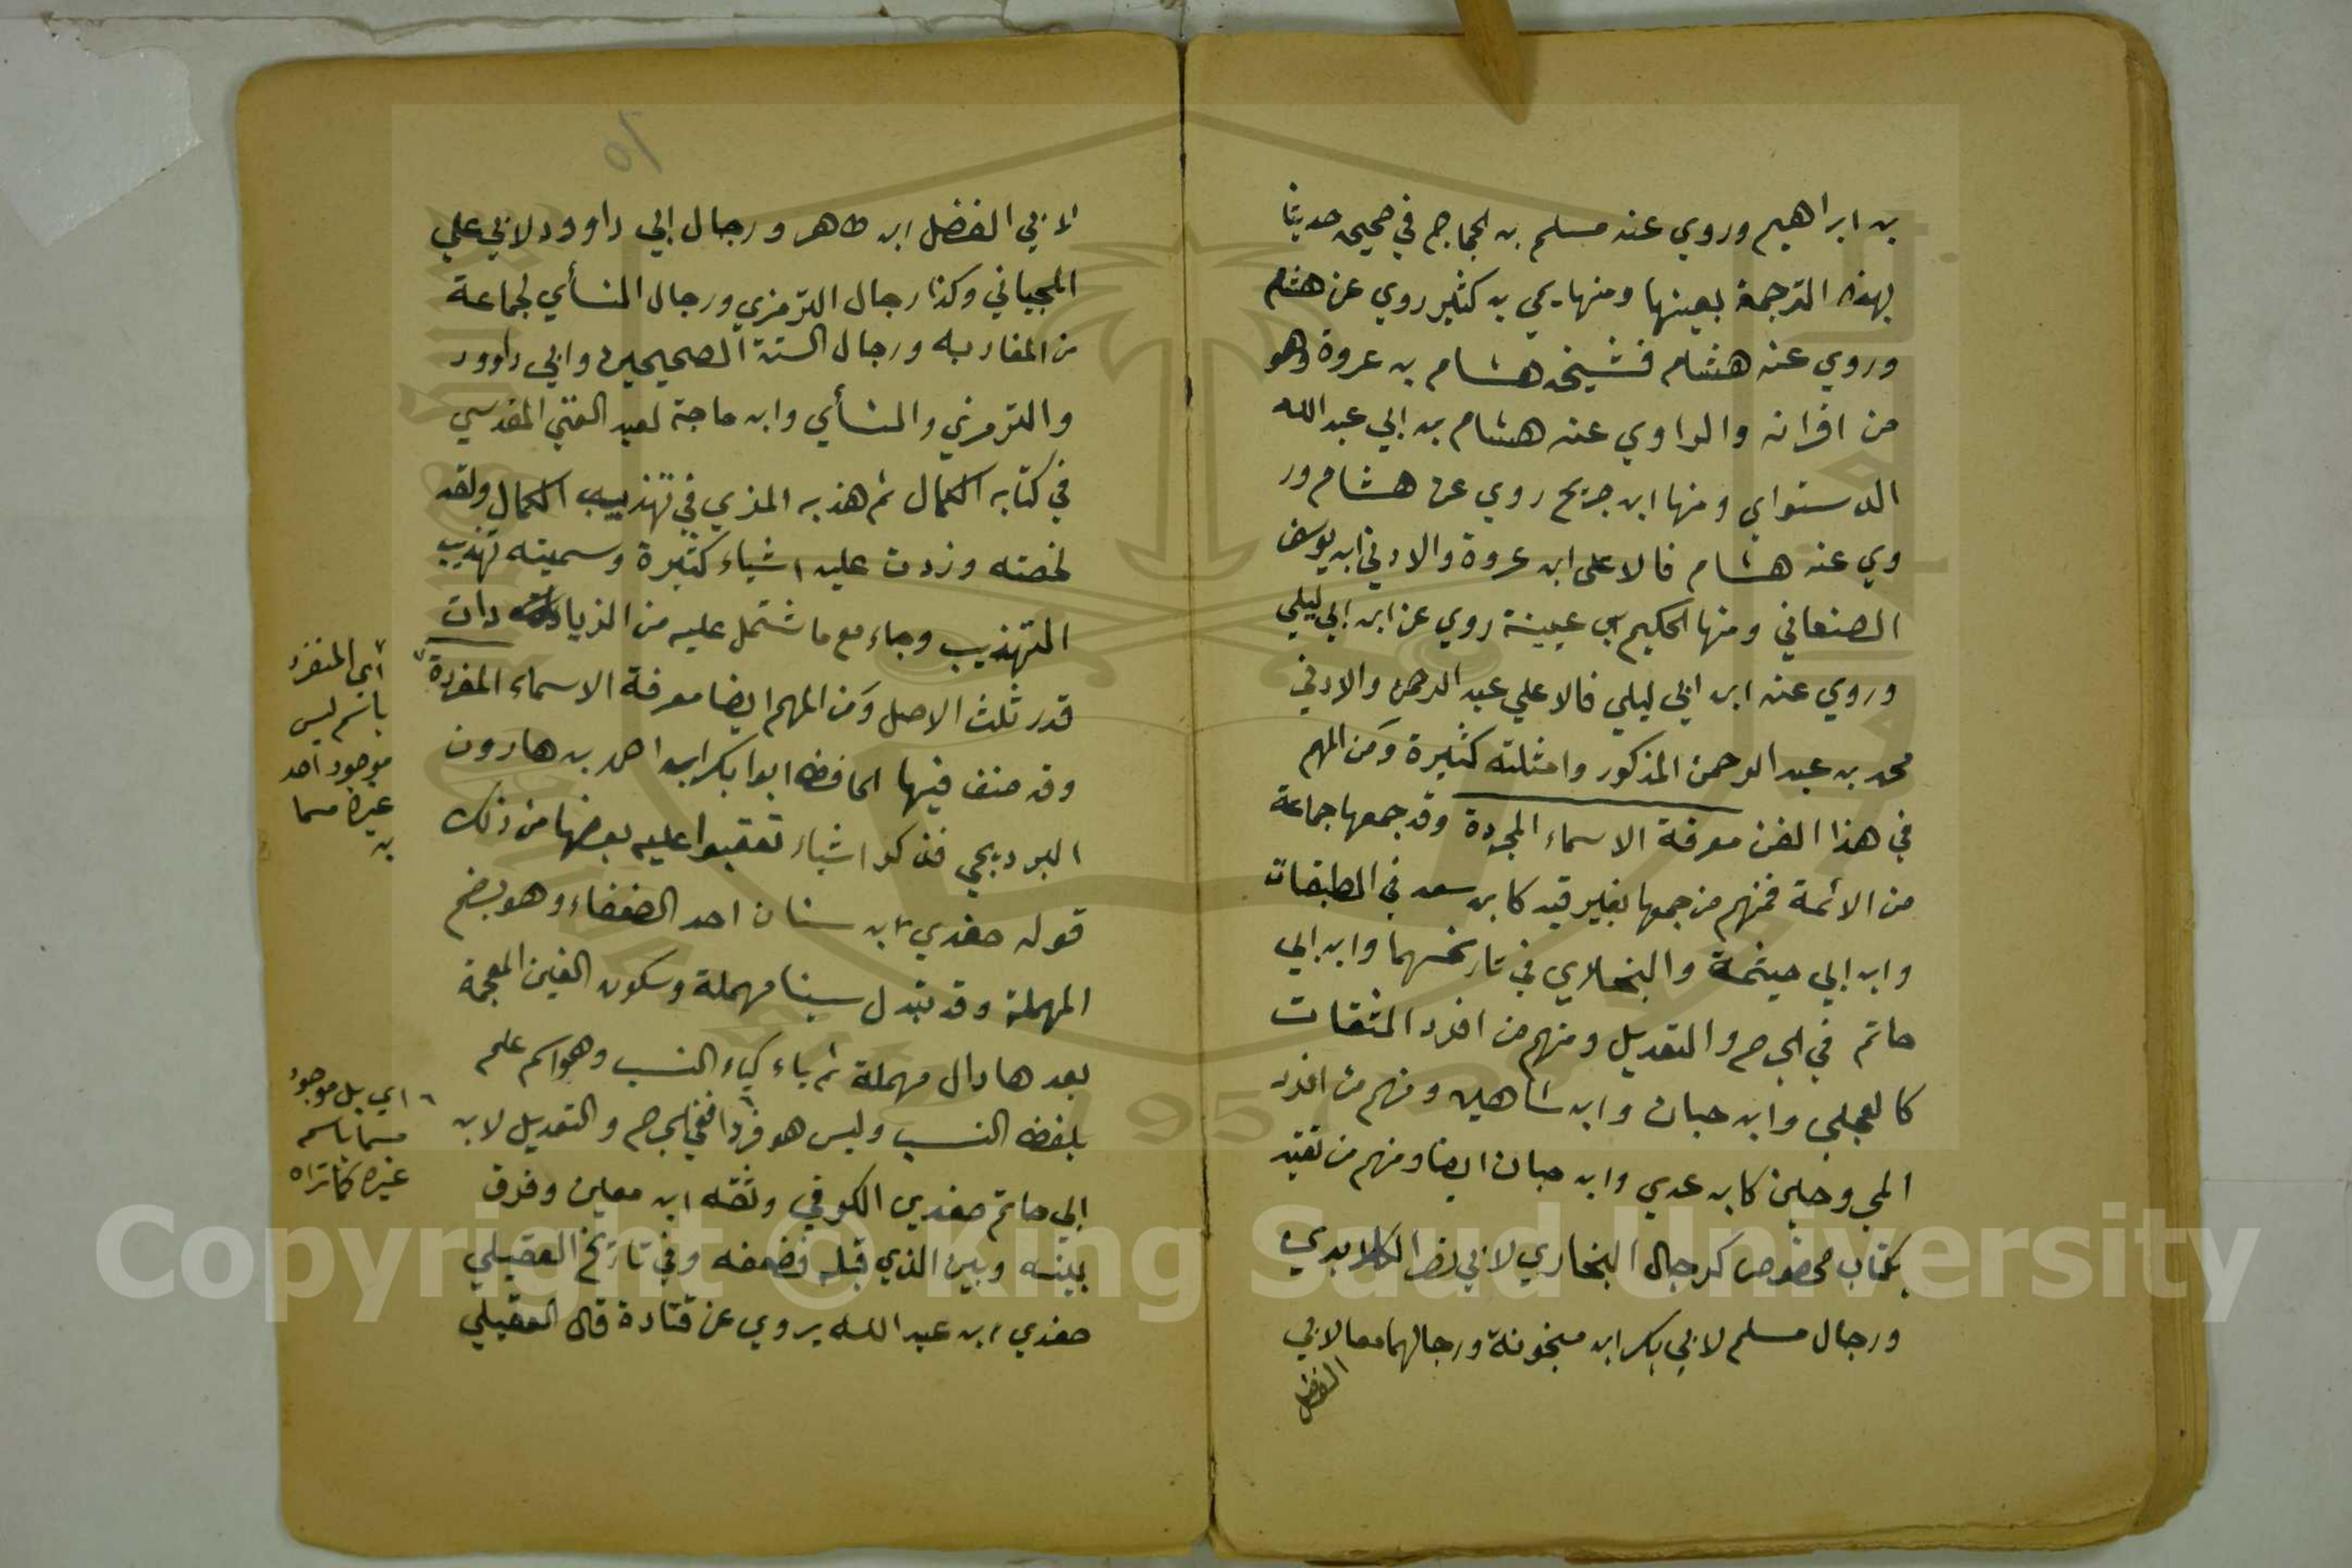 بن ابراهيم وروي عنه مسلم بن الحجاج في صحيحه حديثا
بهذه الترجمة بعينها ومنها يحيى بن كثير روي عن هشام
وروي عنه هشام فشيخه هشام بن عروة وهو
من اقرانه والراوي عنه هشام بن ابي عبد الله
الدستواي ومنها ابن جريج روي عن هشام ور
وي عنه هشام فالاعلى ابن عروة والادني ابن يوسف
الصنعاني ومنها الحكيم بن عيينة روي عن ابن ابي ليلي
وروي عنه ابن ابي ليلي فالاعلي عبد الرحمن والادني
محمد بن عبد الرحمن المذكور وامثلته كثيرة ومن المهم
في هذا الفن معرفة الاسماء المجردة وقد جمعها جماعة
من الائمة فمنهم من جمعها بغير قيد كابن سعد في الطبقات
وابن ابي خيثمة والبخاري في تاريخهما وابن ابي
حاتم في الجرح والتعديل ومنهم من افرد الثقات
كالعجلي وابن حبان وابن شاهين ومنهم من افرد
المجروحين كابن عدي وابن حبان ايضا ومنهم من تقيد
بكتاب مخصوص كرجال البخاري لابي نصر الكلابدي
ورجال مسلم لابي بكر ابن منجونة ورجالهما معا لابي
الفضل
١٥
لابي الفضل ابن طاهر ورجال ابي داوود لابي علي
الجياني وكذا رجال الترمزي ورجال النسأي لجماعة
من المغاربه ورجال الستة الصحيحين وابي داوود
والترمزي والنسأي وابن ماجة لعبد الغني المقدسي
في كتابه الكمال ثم هذبه المزي في تهذيب الكمال ولقد
لخصته وزدت عليه اشياء كثيرة وسميته تهذيب
التهذيب وجاء مع ما شتمل عليه من الزيادات
قدر ثلث الاصل ومن المهم ايضا معرفة الاسماء المفردة
وقد صنف فيها الحافظ ابوا بكر ابن احمد بن هارون
البرديجي فذكر اشياء تعقبوا عليه بعضها من ذلك
قوله صغدي ابن سنان احد الضعفاء وهو بضم
المهملة وقد تبدل سينا مهملة وسكون الغين المعجمة
بعدها دال مهملة ثم ياء كياء النسب وهو اسم علم
بلفظ النسب وليس هو فردا ففي الجرح والتعديل لابن
ابي حاتم صغدي الكوفي وثقه ابن معين وفرق
بينه وبين الذي قبله فضعفه وفي تاريخ العقيلي
صغدي ابن عبد الله يروي عن قتادة قال العقيلي
أي المنفرد
باسم ليس
موجود احد
غيره مسما
به
اي بل موجود
مسما باسم
غيره كما تراه
Copyright © King Saud University
1957